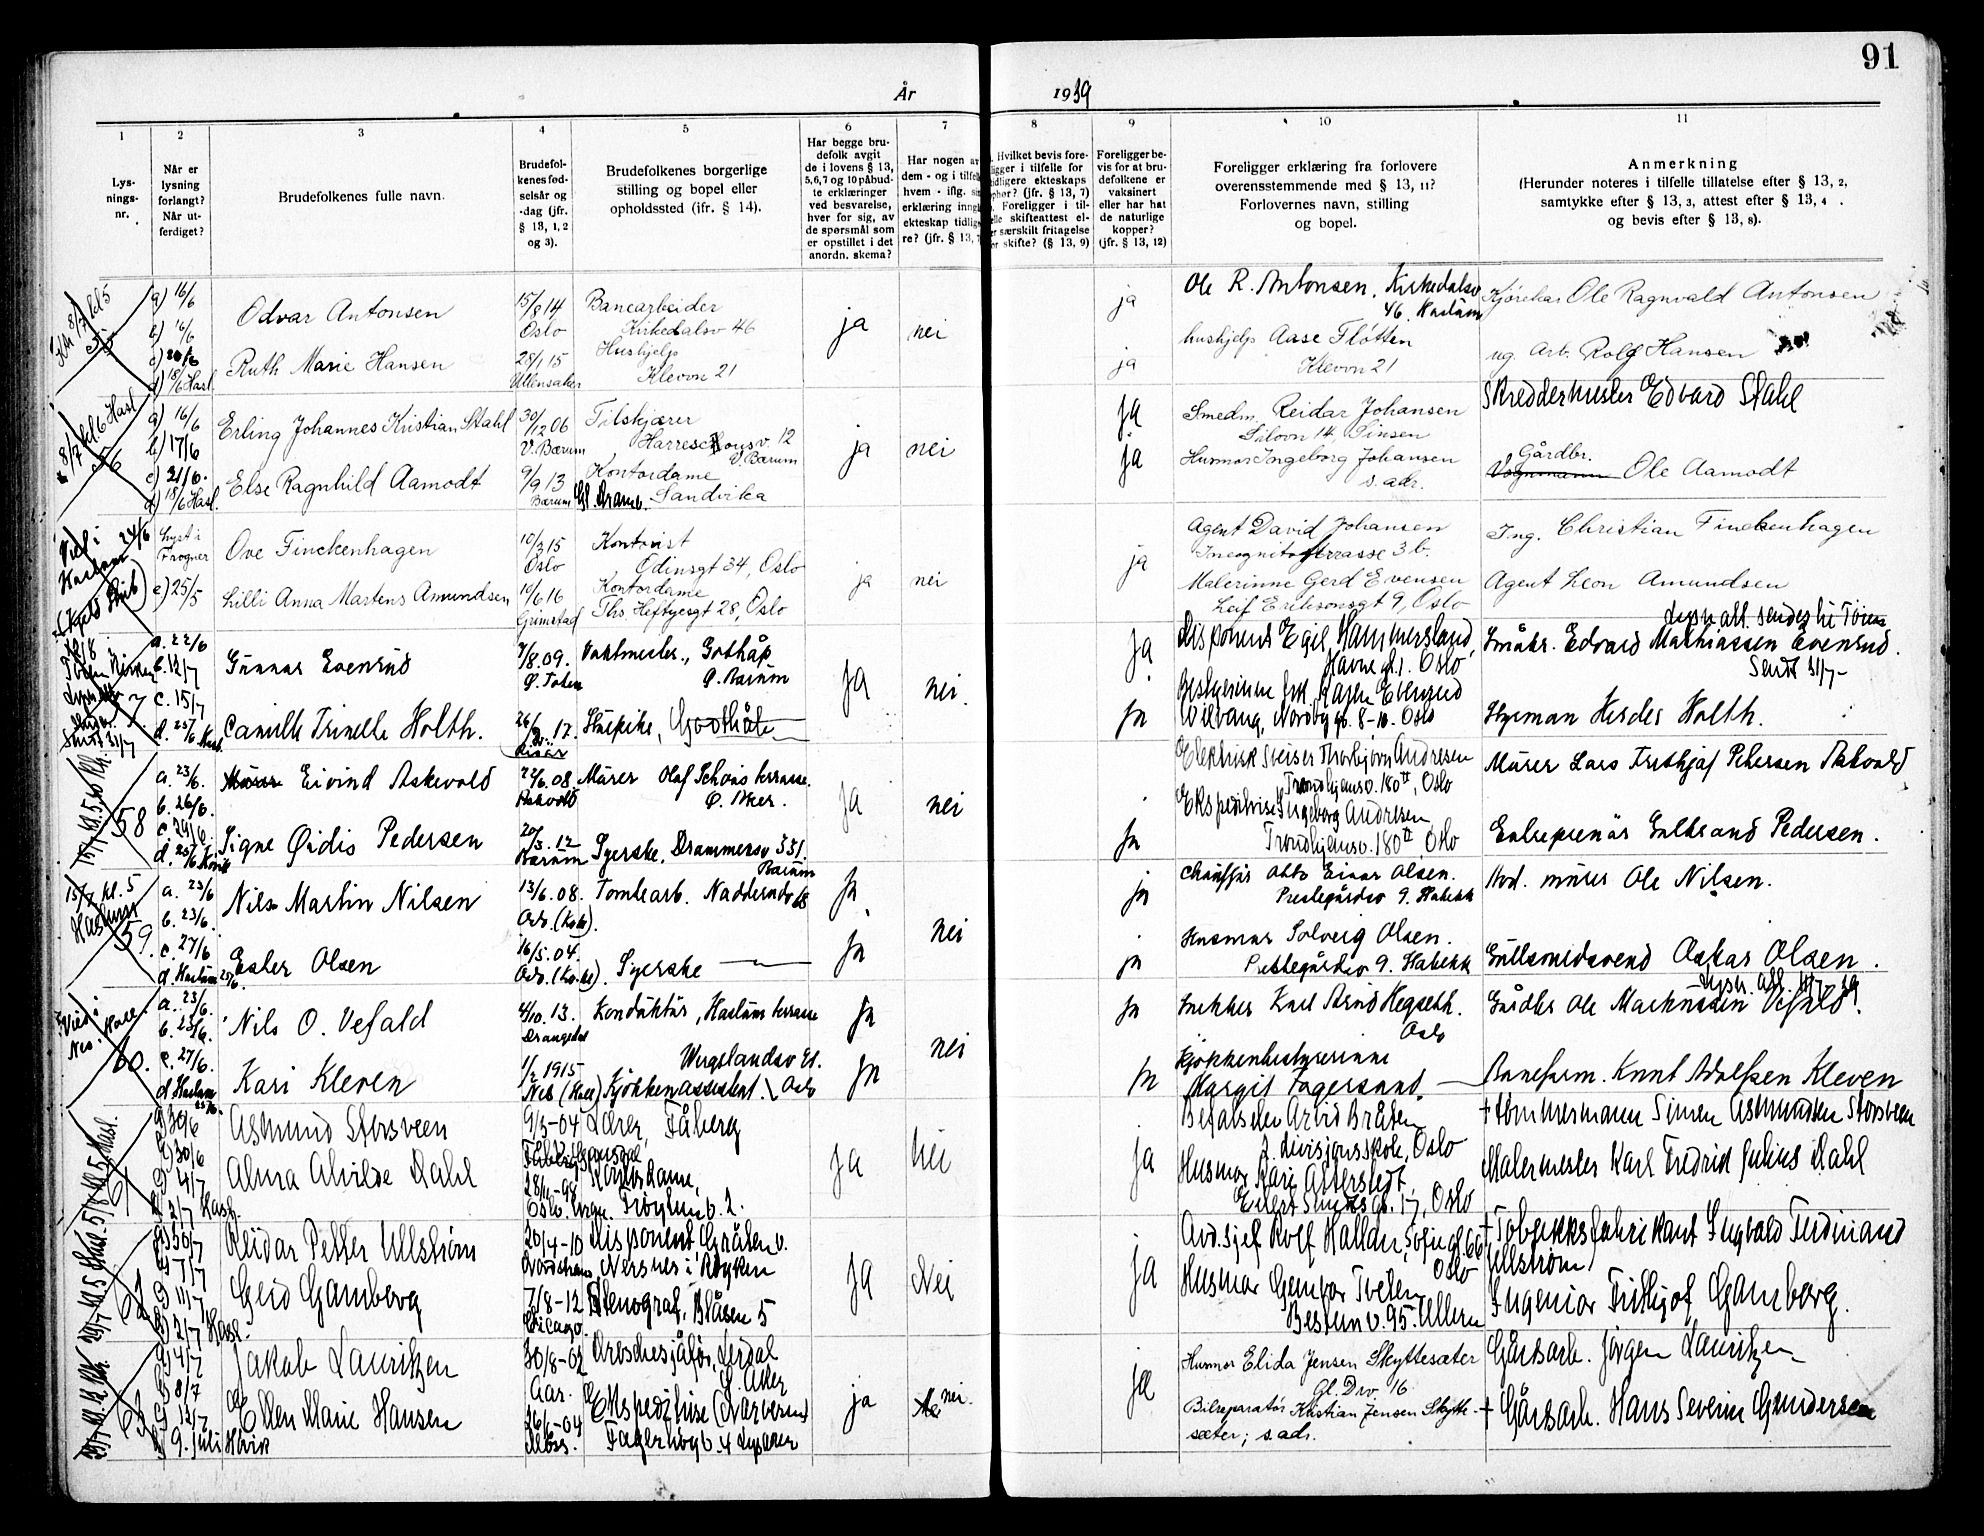 91
År 1939
1 2 3 4 5 6 7 8 9 10 11
Lys-
nings-
nr.
Når er
lysning
forlangt?
Når ut-
ferdiget?
Brudefolkenes fulle navn.
Brudefol-
kenes fød-
selsår og
-dag (jfr.
§ 13, 1, 2
og 3).
Brudefolkenes borgerlige
stilling og bopel eller
opholdssted (ifr. § 14).
Har begge bru-
defolk avgit
de i lovens § 13,
5,6,7 og 10 påbud-
te erklæringer
ved besvarelse,
hver for sig, av
de spørsmål som
er opstillet i det
anordn. skema?
Har nogen av
dem - og i tilfelle
hvem - iflg. sin
erklæring inngått
ekteskap tidlige-
re? (jfr. § 13, 7
Hvilket bevis fore-
ligger i tilfelle for
tidligere ekteskaps
ophør? (jfr. § 13, 7)
Foreligger i til-
felle skifteattest el-
er særskilt fritagelse
or skifte? (§ 13, 9)
Foreligger be-
vis for at bru-
defolkene er
vaksinert
eller har hat
de naturlige
kopper?
(jfr. § 13, 12)
Foreligger erklæring fra forlovere
overensstemmende med § 13, 11?
Forlovernes navn, stilling
og bopel.
Anmerkning
(Herunder noteres i tilfelle tillatelse efter § 13, 2,
samtykke efter § 13, 3, attest efter § 13, 4 .
og bevis efter § 13, 8).
8/7 kl 5
a) 16/6
b) 16/6
c) 20/6
d) 18/6 Hasl.
Odvar Antonsen
15/8 14
Oslo
Banearbeider
Kirkedalsv 46
ja
nei
ja
Ole R. Antonsen, Kirkedalsv
46. Haslum
Kjørekar Ole Ragnvald Antonsen
Ruth Marie Hansen
28/1 15
Ullensaker
Hushjelp
Klevvn 21
ja
hushjelp Aase Fløtten
Klevvn 21
ug. Arb. Rolf Hansen
8/7 kl. 6 Hasl
56
a) 16/6
b) 17/6
c) 21/6.
d) 18/6 Hasl.
Erling Johannes Kristian Stahl
30/12 06
V. Bærum
Filskjærer
Harreschousv. 12
V. Bærum
ja
nei
ja
Smedm. Reidar Johansen
Silovn 14, Sinsen
Skreddermester Edvard Stahl
Else Ragnhild Aamodt
9/9 13
Bærum
Kontordame
Gl. Dramv. Sandvika
ja
Husmor Ingeborg Johansen
s. adr.
Gårdbr.
Vognmann Ole Aamodt
Viet i
Haslum 24/6
lyst i
Frogner
c) 25/5
Ove Finckenhagen
10/3 15
Oslo
Kontorist
Odinsgt 34, Oslo
ja
nei
ja
Agent David Johansen
Incognitoterrasse 3 b.
Ing. Christian Finckenhagen
Lilli Anna Martens Amundsen
10/6 16
Grimstad
Kontordame
Ths. Heftyesgt 28, Oslo
Malerinne Gerd Evensen
Leif Eriksonsgt 9, Oslo
Agent Leon Amundsen
Sendt 31/7
a. 22/6
b. 12/7
c. 15/7
d. 25/6 Hasl.
Gunnar Evensrud
7/8.09.
Ø. Toten
Vaktmester., Gothåp
Ø. Bærum
ja
nei.
ja
Disponent Egil Hammersland,
Oslo
Småbr. Edvard Mathiassen Evensrud.
Sendt 31/7-
Camilla Trinelle Holth.
Stuepike, Godthåb
ja
Bestyrerinne frk. Karen Evensrud
Vilvang, Nordbygt. 8-10. Oslo
Styrman Herder Holth.
58
a. 23/6.
b. 26/6
c. 29/6.
d. 25/6
Eivind Askevold
22/6.08.
Askvold
Murer Olaf Schous terrasse.
Ø. Aker.
ja
nei
Elektrisk sveiser Thorbjørn Andresen
Trondhjemsv. 180 II, Oslo
Murer Lars Frithjof Petersen Askvold
Signe Øidis Pedersen
20/3.12
Bærum
Syerske, Drammensv 331
Bærum
ja
Ekspeditrise Ingeborg Andresen
Trondhjemsv. 180 II Oslo
Entreprenør Gulbrand Pedersen.
15/7 kl. 5
Haslum
59.
a. 23/6
b. 23/6.
c. 27/6
d. Haslum 25/6.
Nils Martin Nilsen
13/6.08.
Oslo.
Tomtearb. Nadderudv 68
ja
nei
ja
Chauffør Otto Einar Olsen.
Prestegårdsv 9. Habekk
Hvd. murer Ole Nilsen.
Ester Olsen
16/5.04.
Syerske
ja
ja
Husmor Solveig Olsen.
Prestegårdsv 9. Habekk
Gullsmedsvend Oskar Olsen.
60.
a. 23/6.
b. 23/6.
c. 27/6.
d Haslum 25/6.
Nils O. Vefald
4/10.13.
Drangedal
Konduktør, Haslum terrasse
ja
nei
ja
Snekker Karl Arvid Hegseth.
Oslo
Gårdbr Ole Mathissen Vefald.
Kari Kleven
1/2 1915
Nes (Hall)
Wergelandsv
Kjøkkenassistent. Oslo
ja
ja
Kjøkkenbestyrerinne
Margit Fagersand.
Baneform. Knut Adolfsen Kleven
61
a) 30/6
b) 30/6
c) 4/7
d) 2/7 Hasl.
Asmund Storsveen
9/3-04
Lærer, Fåberg
ja
nei
ja
Befalselev Arvid Bråten
2. divisjonsskole, Oslo
+ tømmermann Simen Asmundsen Storsveen
Alma Alvilde Dahl
28/11-98
Kontordame,
Husmor Kari Atterstedt,
Eilert Sundts gt. 17, Oslo
Malermester Karl Fredrik Julius Dahl
29/7 kl. 5 Hasl.
62
c) 11/7
d) 2/7 Hasl.
Reidar Petter Ullstrøm
20/4-10
Disponent, Gråten v.
Nersnes i Røyken
ja
Nei
ja
Avd.sjef Rolf Hallan, Sofiegt 66
Oslo
+ Tobakksfabrikant Ingvald Ferdinand
Ullstrøm
Gerd Gamborg
7/8-12
Chicago.
Stenograf, Blåsen 5
Husmor Gunvor Tveten
Bestum v. 95. Ullern
Ingeniør Frithjof Gamborg.
63
a) 4/7
b) 8/7
c) 12/7
d) 9. juli Høvik
Jakob Lauritzen
30/8-02
Drosjesjåfør, Lerdal
V. Aker
ja
nei
ja
Husmor Elida Jensen Skyttesæter
Gl. Drv. 16
Gårdsarb. Jørgen Lauritzen
Ellen Marie Hansen
26/1-04
Moss.
Ekspeditrise (Narvesen)
Fagerhøy v. 4 Lysaker
Bilreparatør Kristian Jensen Skytte-
sæter; s. adr.
+ Gårdsarb. Hans Severin Gundersen